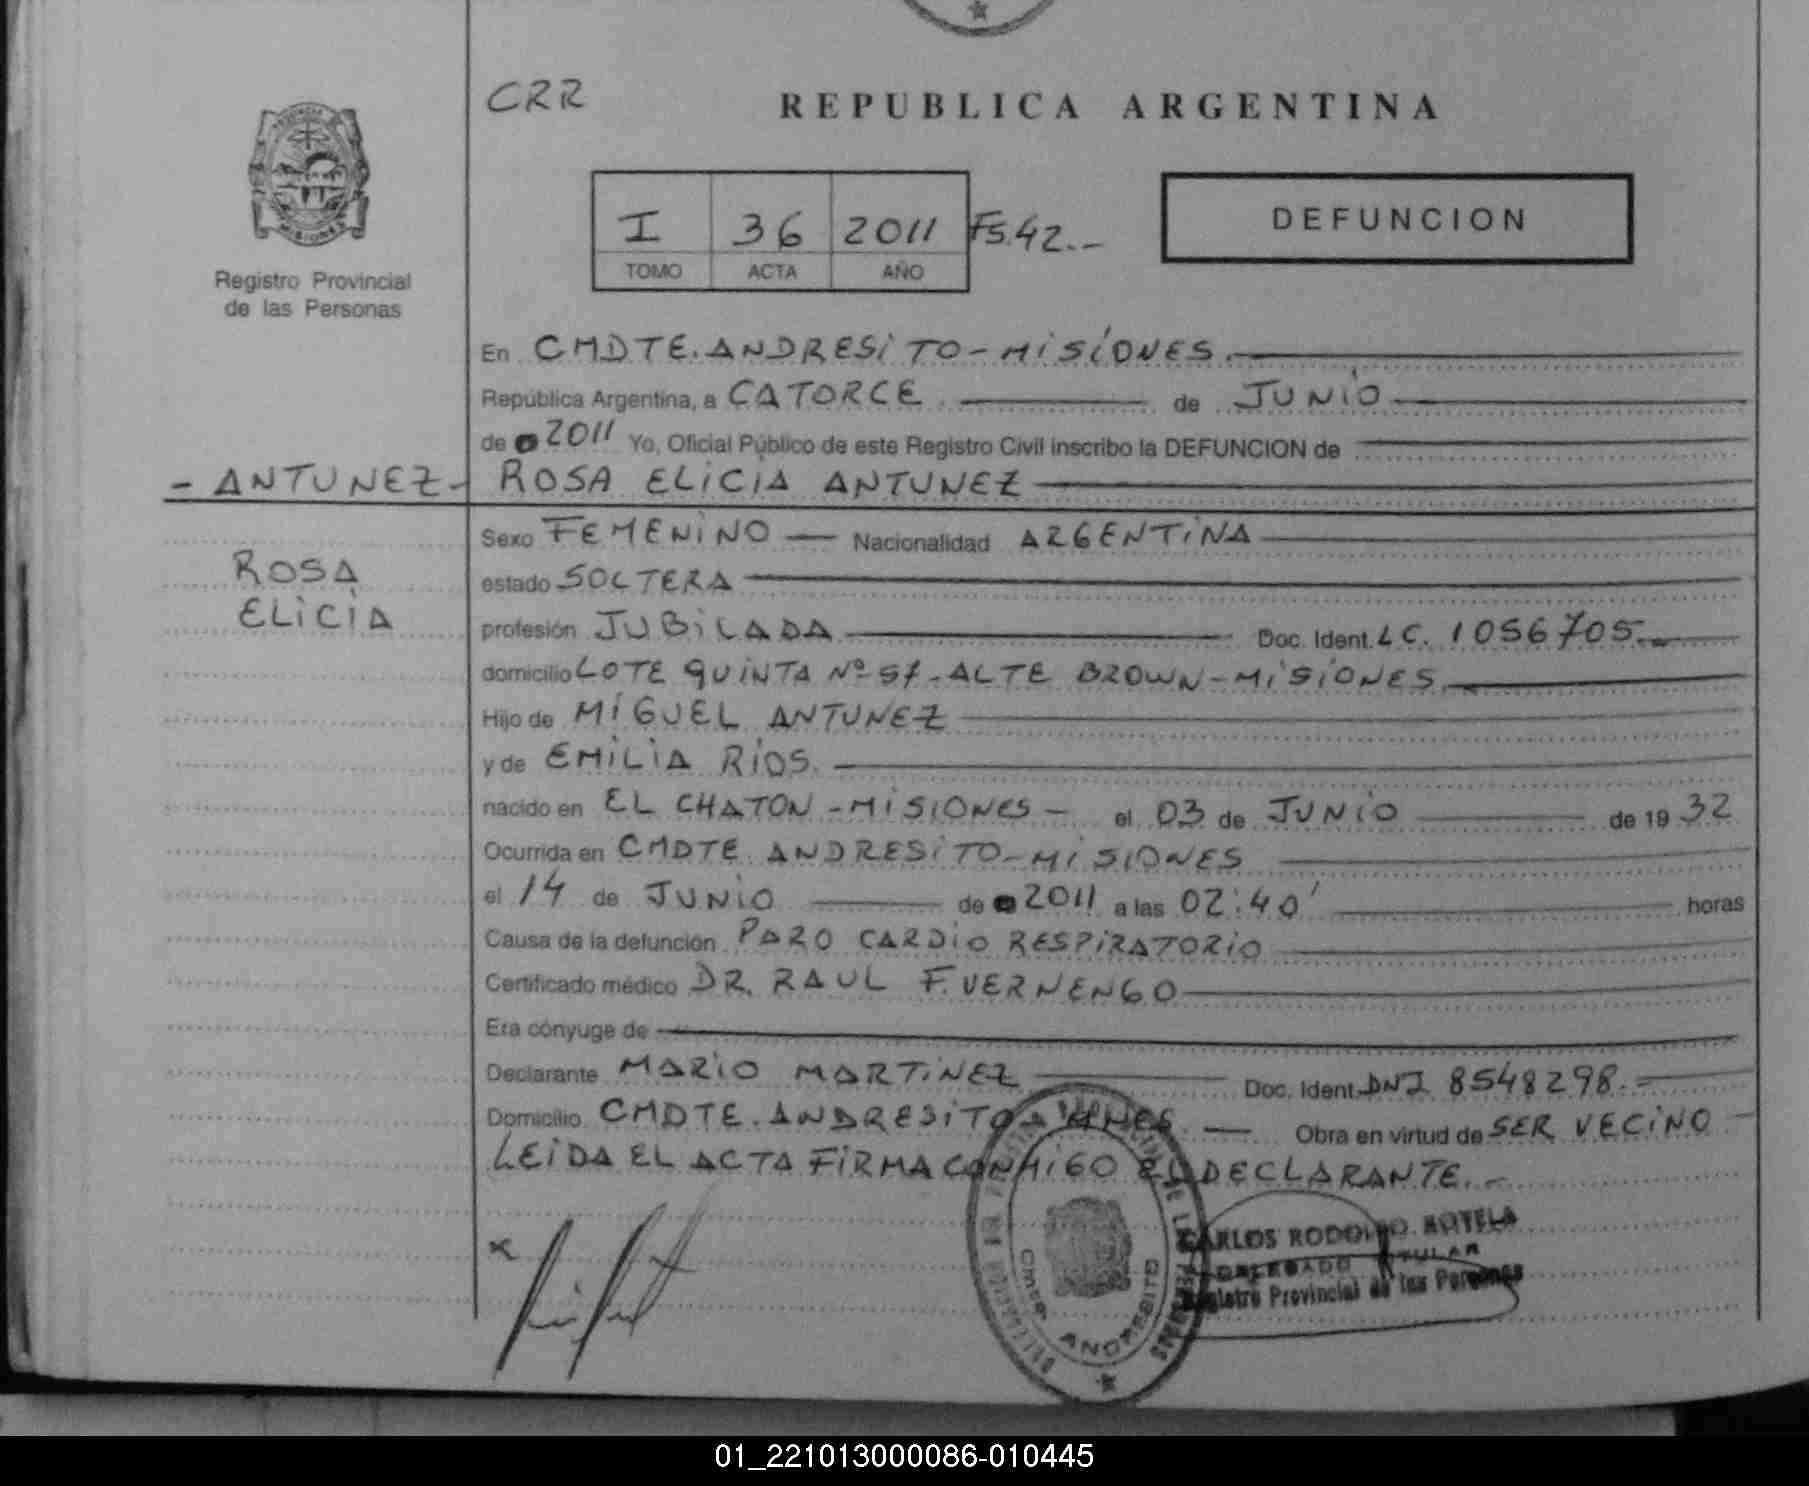 CRR
REPUBLICA ARGENTINA
I 36 2011 Fs.42.-
TOMO ACTA AÑO
DEFUNCION
MISIONES
Registro Provincial
de las Personas
En CMDTE. ANDRESITO - MISIONES.
República Argentina, a CATORCE de JUNIO
de 2011 Yo, Oficial Público de este Registro Civil inscribo la DEFUNCION de
- ANTUNEZ - ROSA ELICIA ANTUNEZ
ROSA
ELICIA
Sexo FEMENINO Nacionalidad ARGENTINA
estado SOLTERA
profesión JUBILADA Doc. Ident. LC. 1056705.-
domicilio LOTE QUINTA Nº S/ - ALTE BROWN - MISIONES
Hijo de MIGUEL ANTUNEZ
y de EMILIA RIOS.
nacido en EL CHATON - MISIONES - el 03 de JUNIO de 19 32
Ocurrida en CMDTE ANDRESITO - MISIONES
el 14 de JUNIO de 2011 a las 02:40' horas
Causa de la defunción PARO CARDIO RESPIRATORIO
Certificado médico DR. RAUL F. VERNENGO
Era cónyuge de
Declarante MARIO MARTINEZ Doc. Ident. DNI 8548298.-
Domicilio CMDTE. ANDRESITO - MNES Obra en virtud de SER VECINO
LEIDA EL ACTA FIRMA CONMIGO EL DECLARANTE.-
x
CARLOS RODOLFO ROTELA
DELEGADO TITULAR
Registro Provincial de las Personas
CMDTE ANDRESITO
01_221013000086-010445